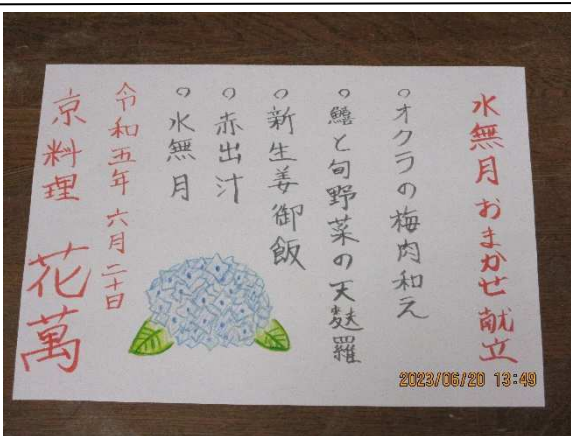 水無月おまかせ献立
○オクラの梅肉和え
○鱚と旬野菜の天麩羅
○新生姜御飯
○赤出汁
○水無月
令和五年 六月二十日
京料理 花萬
2023/06/20 13:49